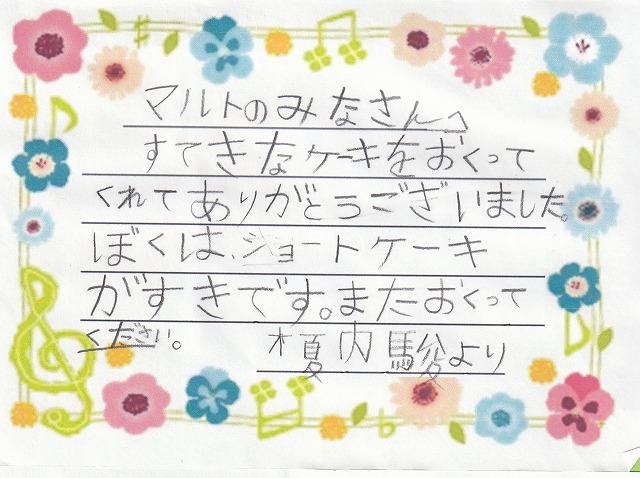 マルトのみなさんへ
すてきなケーキをおくって
くれてありがとうございました。
ぼくは、ショートケーキ
がすきです。またおくって
ください。
榎内駿より